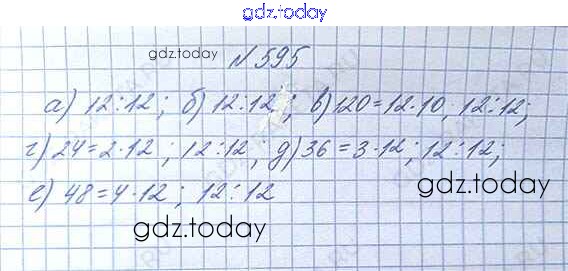 gdz.today
gdz.today
№595
а) 12⋮12; б) 12⋮12; в) 120=12·10, 12⋮12;
г) 24=2·12; 12⋮12; д) 36=3·12; 12⋮12;
е) 48=4·12; 12⋮12
gdz.today
gdz.today